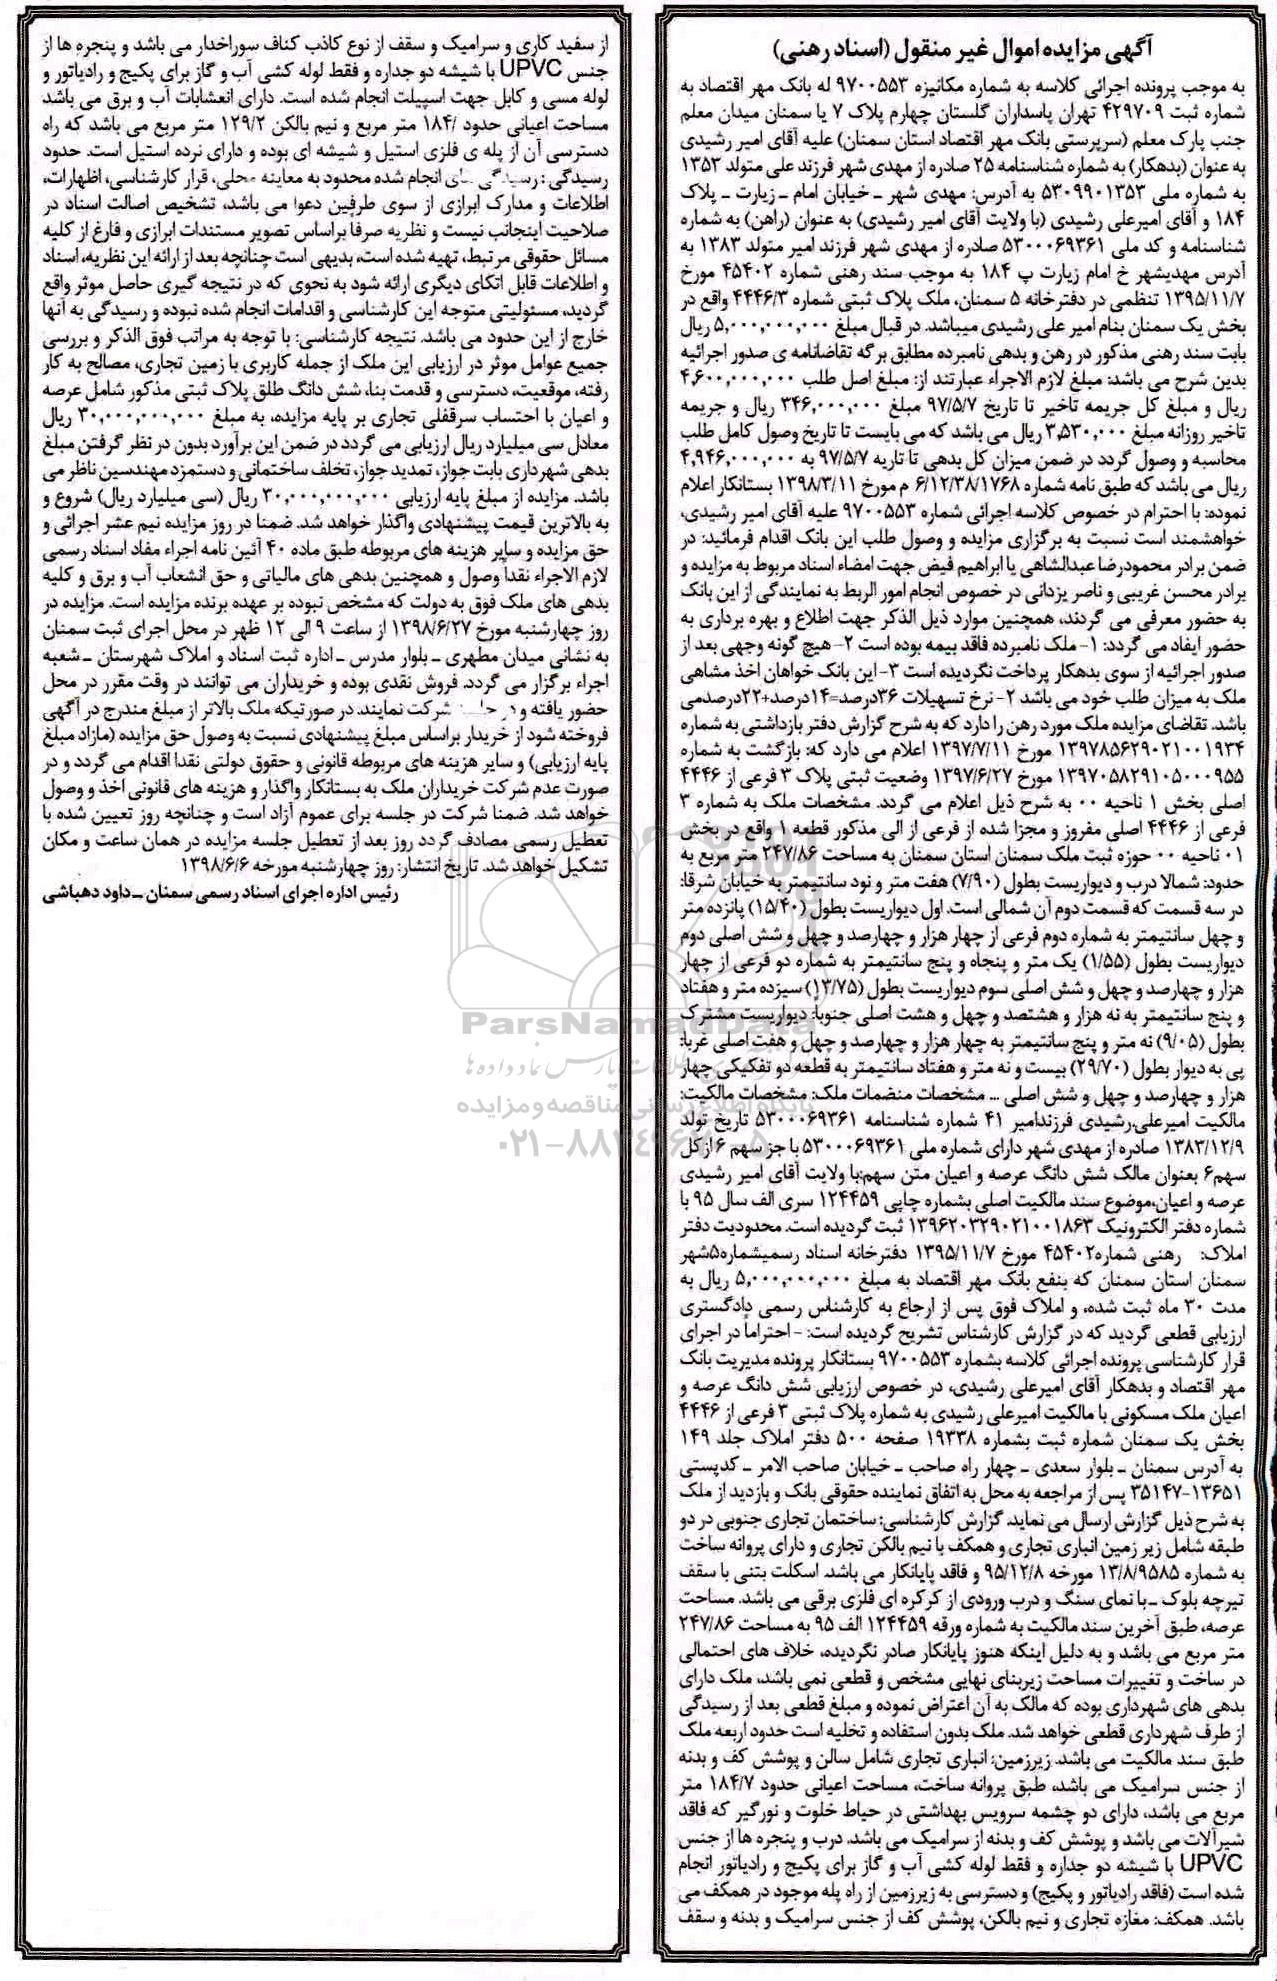 آگهی مزایده اموال غیر منقول (اسناد رهنی)
به موجب پرونده اجرائی کلاسه به شماره مکانیزه ۹۷۰۰۵۵۳ له بانک مهر اقتصاد به
شماره ثبت ۴۲۹۷۰۹ تهران پاسداران گلستان چهارم پلاک ۷ یا سمنان میدان معلم
جنب پارک معلم (سرپرستی بانک مهر اقتصاد استان سمنان) علیه آقای امیر رشیدی
به عنوان (بدهکار) به شماره شناسنامه ۲۵ صادره از مهدی شهر فرزند علی متولد ۱۳۵۳
به شماره ملی ۵۳۰۹۹۰۱۳۵۳ به آدرس: مهدی شهر ـ خیابان امام ـ زیارت ـ پلاک
۱۸۴ و آقای امیرعلی رشیدی (با ولایت آقای امیر رشیدی) به عنوان (راهن) به شماره
شناسنامه و کد ملی ۵۳۰۰۰۶۹۳۶۱ صادره از مهدی شهر فرزند امیر متولد ۱۳۸۳ به
آدرس مهدیشهر خ امام زیارت پ ۱۸۴ به موجب سند رهنی شماره ۴۵۴۰۲ مورخ
۱۳۹۵/۱۱/۷ تنظمی در دفترخانه ۵ سمنان، ملک پلاک ثبتی شماره ۴۴۴۶/۳ واقع در
بخش یک سمنان بنام امیر علی رشیدی میباشد. در قبال مبلغ ۵,۰۰۰,۰۰۰,۰۰۰ ریال
بابت سند رهنی مذکور در رهن و بدهی نامبرده مطابق برگه تقاضانامه ی صدور اجرائیه
بدین شرح می باشد: مبلغ لازم الاجراء عبارتند از: مبلغ اصل طلب ۴,۶۰۰,۰۰۰,۰۰۰
ریال و مبلغ کل جریمه تاخیر تا تاریخ ۹۷/۵/۷ مبلغ ۳۴۶,۰۰۰,۰۰۰ ریال و جریمه
تاخیر روزانه مبلغ ۳,۵۳۰,۰۰۰ ریال می باشد که می بایست تا تاریخ وصول کامل طلب
محاسبه و وصول گردد در ضمن میزان کل بدهی تا تاریه ۹۷/۵/۷ به ۴,۹۴۶,۰۰۰,۰۰۰
ریال می باشد که طبق نامه شماره ۶/۱۲/۳۸/۱۷۶۸ م مورخ ۱۳۹۸/۳/۱۱ بستانکار اعلام
نموده: با احترام در خصوص کلاسه اجرائی شماره ۹۷۰۰۵۵۳ علیه آقای امیر رشیدی،
خواهشمند است نسبت به برگزاری مزایده و وصول طلب این بانک اقدام فرمائید: در
ضمن برادر محمودرضا عبدالشاهی یا ابراهیم فیض جهت امضاء اسناد مربوط به مزایده و
برادر محسن غریبی و ناصر یزدانی در خصوص انجام امور الربط به نمایندگی از این بانک
به حضور معرفی می گردند، همچنین موارد ذیل الذکر جهت اطلاع و بهره برداری به
حضور ایفاد می گردد: ۱- ملک نامبرده فاقد بیمه بوده است ۲- هیچ گونه وجهی بعد از
صدور اجرائیه از سوی بدهکار پرداخت نگردیده است ۳- این بانک خواهان اخذ مشاهی
ملک به میزان طلب خود می باشد ۲- نرخ تسهیلات ۳۶درصد=۱۴درصد+۲۲درصدمی
باشد. تقاضای مزایده ملک مورد رهن را دارد که به شرح گزارش دفتر بازداشتی به شماره
۱۳۹۷۸۵۶۲۹۰۲۱۰۰۱۹۳۴ مورخ ۱۳۹۷/۷/۱۱ اعلام می دارد که: بازگشت به شماره
۱۳۹۷۰۵۸۲۹۱۰۵۰۰۰۹۵۵ مورخ ۱۳۹۷/۶/۲۷ وضعیت ثبتی پلاک ۳ فرعی از ۴۴۴۶
اصلی بخش ۱ ناحیه ۰۰ به شرح ذیل اعلام می گردد. مشخصات ملک به شماره ۳
فرعی از ۴۴۴۶ اصلی مفروز و مجزا شده از فرعی از الی مذکور قطعه ۱ واقع در بخش
۰۱ ناحیه ۰۰ حوزه ثبت ملک سمنان استان سمنان به مساحت ۲۴۷/۸۶ متر مربع به
حدود: شمالا درب و دیواریست بطول (۷/۹۰) هفت متر و نود سانتیمتر به خیابان شرقا:
در سه قسمت که قسمت دوم آن شمالی است. اول دیواریست بطول (۱۵/۴۰) پانزده متر
و چهل سانتیمتر به شماره دوم فرعی از چهار هزار و چهارصد و چهل و شش اصلی دوم
دیواریست بطول (۱/۵۵) یک متر و پنجاه و پنج سانتیمتر به شماره دو فرعی از چهار
هزار و چهارصد و چهل و شش اصلی سوم دیواریست بطول (۱۳/۷۵) سیزده متر و هفتاد
و پنج سانتیمتر به نه هزار و هشتصد و چهل و هشت اصلی جنوبا: دیواریست مشترک
بطول (۹/۰۵) نه متر و پنج سانتیمتر به چهار هزار و چهارصد و چهل و هفت اصلی غربا:
پی به دیوار بطول (۲۹/۷۰) بیست و نه متر و هفتاد سانتیمتر به قطعه دو تفکیکی چهار
هزار و چهارصد و چهل و شش اصلی ... مشخصات منضمات ملک: مشخصات مالکیت:
مالکیت امیرعلی,رشیدی فرزندامیر ۴۱ شماره شناسنامه ۵۳۰۰۰۶۹۳۶۱ تاریخ تولد
۱۳۸۳/۱۲/۹ صادره از مهدی شهر دارای شماره ملی ۵۳۰۰۰۶۹۳۶۱ با جز سهم ۶ از کل
سهم۶ بعنوان مالک شش دانگ عرصه و اعیان متن سهم:با ولایت آقای امیر رشیدی
عرصه و اعیان،موضوع سند مالکیت اصلی بشماره چاپی ۱۲۴۴۵۹ سری الف سال ۹۵ با
شماره دفتر الکترونیک ۱۳۹۶۲۰۳۲۹۰۲۱۰۰۱۸۶۳ ثبت گردیده است. محدودیت دفتر
املاک: رهنی شماره۴۵۴۰۲ مورخ ۱۳۹۵/۱۱/۷ دفترخانه اسناد رسمیشماره۵شهر
سمنان استان سمنان که بنفع بانک مهر اقتصاد به مبلغ ۵,۰۰۰,۰۰۰,۰۰۰ ریال به
مدت ۳۰ ماه ثبت شده، و املاک فوق پس از ارجاع به کارشناس رسمی دادگستری
ارزیابی قطعی گردید که در گزارش کارشناس تشریح گردیده است: - احتراماً در اجرای
قرار کارشناسی پرونده اجرائی کلاسه بشماره ۹۷۰۰۵۵۳ بستانکار پرونده مدیریت بانک
مهر اقتصاد و بدهکار آقای امیرعلی رشیدی، در خصوص ارزیابی شش دانگ عرصه و
اعیان ملک مسکونی با مالکیت امیرعلی رشیدی به شماره پلاک ثبتی ۳ فرعی از ۴۴۴۶
بخش یک سمنان شماره ثبت بشماره ۱۹۳۳۸ صفحه ۵۰۰ دفتر املاک جلد ۱۴۹
به آدرس سمنان ـ بلوار سعدی ـ چهار راه صاحب ـ خیابان صاحب الامر ـ کدپستی
۳۵۱۴۷-۱۳۶۵۱ پس از مراجعه به محل به اتفاق نماینده حقوقی بانک و بازدید از ملک
به شرح ذیل گزارش ارسال می نماید. گزارش کارشناسی: ساختمان تجاری جنوبی در دو
طبقه شامل زیر زمین انباری تجاری و همکف با نیم بالکن تجاری و دارای پروانه ساخت
به شماره ۱۳/۸/۹۵۸۵ مورخه ۹۵/۱۲/۸ و فاقد پایانکار می باشد. اسکلت بتنی با سقف
تیرچه بلوک ـ با نمای سنگ و درب ورودی از کرکره ای فلزی برقی می باشد. مساحت
عرصه، طبق آخرین سند مالکیت به شماره ورقه ۱۲۴۴۵۹ الف ۹۵ به مساحت ۲۴۷/۸۶
متر مربع می باشد و به دلیل اینکه هنوز پایانکار صادر نگردیده، خلاف های احتمالی
در ساخت و تغییرات مساحت زیربنای نهایی مشخص و قطعی نمی باشد، ملک دارای
بدهی های شهرداری بوده که مالک به آن اعتراض نموده و مبلغ قطعی بعد از رسیدگی
از طرف شهرداری قطعی خواهد شد. ملک بدون استفاده و تخلیه است حدود اربعه ملک
طبق سند مالکیت می باشد. زیرزمین: انباری تجاری شامل سالن و پوشش کف و بدنه
از جنس سرامیک می باشد، طبق پروانه ساخت، مساحت اعیانی حدود ۱۸۴/۷ متر
مربع می باشد، دارای دو چشمه سرویس بهداشتی در حیاط خلوت و نورگیر که فاقد
شیرآلات می باشد و پوشش کف و بدنه از سرامیک می باشد. درب و پنجره ها از جنس
UPVC با شیشه دو جداره و فقط لوله کشی آب و گاز برای پکیج و رادیاتور انجام
شده است (فاقد رادیاتور و پکیج) و دسترسی به زیرزمین از راه پله موجود در همکف می
باشد. همکف: مغازه تجاری و نیم بالکن، پوشش کف از جنس سرامیک و بدنه و سقف
از سفید کاری و سرامیک و سقف از نوع کاذب کناف سوراخدار می باشد و پنجره ها از
جنس UPVC با شیشه دو جداره و فقط لوله کشی آب و گاز برای پکیج و رادیاتور و
لوله مسی و کابل جهت اسپیلت انجام شده است. دارای انعشابات آب و برق می باشد
مساحت اعیانی حدود ۱۸۴/ متر مربع و نیم بالکن ۱۲۹/۲ متر مربع می باشد که راه
دسترسی آن از پله ی فلزی استیل و شیشه ای بوده و دارای نرده استیل است. حدود
رسیدگی: رسیدگی های انجام شده محدود به معاینه محلی، قرار کارشناسی، اظهارات،
اطلاعات و مدارک ابرازی از سوی طرفین دعوا می باشد، تشخیص اصالت اسناد در
صلاحیت اینجانب نیست و نظریه صرفا براساس تصویر مستندات ابرازی و فارغ از کلیه
مسائل حقوقی مرتبط، تهیه شده است، بدیهی است چنانچه بعد از ارائه این نظریه، اسناد
و اطلاعات قابل اتکای دیگری ارائه شود به نحوی که در نتیجه گیری حاصل موثر واقع
گردید، مسئولیتی متوجه این کارشناسی و اقدامات انجام شده نبوده و رسیدگی به آنها
خارج از این حدود می باشد. نتیجه کارشناسی: با توجه به مراتب فوق الذکر و بررسی
جمیع عوامل موثر در ارزیابی این ملک از جمله کاربری با زمین تجاری، مصالح به کار
رفته، موقعیت، دسترسی و قدمت بنا، شش دانگ طلق پلاک ثبتی مذکور شامل عرصه
و اعیان با احتساب سرقفلی تجاری بر پایه مزایده، به مبلغ ۳۰,۰۰۰,۰۰۰,۰۰۰ ریال
معادل سی میلیارد ریال ارزیابی می گردد در ضمن این برآورد بدون در نظر گرفتن مبلغ
بدهی شهرداری بابت جواز، تمدید جواز، تخلف ساختمانی و دستمزد مهندسین ناظر می
باشد. مزایده از مبلغ پایه ارزیابی ۳۰,۰۰۰,۰۰۰,۰۰۰ ریال (سی میلیارد ریال) شروع و
به بالاترین قیمت پیشنهادی واگذار خواهد شد. ضمنا در روز مزایده نیم عشر اجرائی و
حق مزایده و سایر هزینه های مربوطه طبق ماده ۴۰ آئین نامه اجراء مفاد اسناد رسمی
لازم الاجراء نقداً وصول و همچنین بدهی های مالیاتی و حق انشعاب آب و برق و کلیه
بدهی های ملک فوق به دولت که مشخص نبوده بر عهده برنده مزایده است. مزایده در
روز چهارشنبه مورخ ۱۳۹۸/۶/۲۷ از ساعت ۹ الی ۱۲ ظهر در محل اجرای ثبت سمنان
به نشانی میدان مطهری ـ بلوار مدرس ـ اداره ثبت اسناد و املاک شهرستان ـ شعبه
اجراء برگزار می گردد. فروش نقدی بوده و خریداران می توانند در وقت مقرر در محل
حضور یافته و در جلسه شرکت نمایند. در صورتیکه ملک بالاتر از مبلغ مندرج در آگهی
فروخته شود از خریدار براساس مبلغ پیشنهادی نسبت به وصول حق مزایده (مازاد مبلغ
پایه ارزیابی) و سایر هزینه های مربوطه قانونی و حقوق دولتی نقدا اقدام می گردد و در
صورت عدم شرکت خریداران ملک به بستانکار واگذار و هزینه های قانونی اخذ و وصول
خواهد شد. ضمنا شرکت در جلسه برای عموم آزاد است و چنانچه روز تعیین شده با
تعطیل رسمی مصادف گردد روز بعد از تعطیل جلسه مزایده در همان ساعت و مکان
تشکیل خواهد شد. تاریخ انتشار: روز چهارشنبه مورخه ۱۳۹۸/۶/۶
رئیس اداره اجرای اسناد رسمی سمنان ـ داود دهباشی
ParsNamadData
پایگاه اطلاع رسانی مناقصه و مزایده
۰۲۱-۸۸۳۴۹۶۷۰-۵